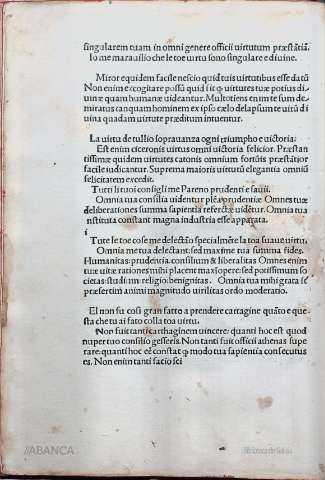 singularem tuam in omni genere officii uirtutum præstãtiã.
Io me marauilio che le toe uirtu sono singulare e diuine.
Miror equidem facile nescio quid tuis uirtutibus esse datũ
Non enim excogitare possũ quid sit ꝙ uirtutes tuæ potius di
uinæ quam humanæ uideantur. Multotiens enim te sum de
miratus tanquam hominem ex ipso cælo delapsum uirtu di
uina quadam uirtute præditum intuentur.
La uirtu de tullio soprauanza ogni triumpho e uictoria:
Est enim ciceronis uirtus omni uictoria felicior. Præstan
tissimæ quidem uirtutes catonis omnium fortũis præstãtior
facile iudicantur. Suprema maioris uirtutũ elegantia omniũ
felicitatem excedit.
Tutti li tuoi consigli me Pareno prudenti e sauii.
Omnia tua consilia uidentur plẽa prudentiæ Omnes tuæ
deliberationes summa sapientia refertæ uidẽtur. Omnia tua
instituta constant magna industria esse apparata.
i
Tute le toe cose me delectão specialmẽte la toa suaue uirtu,
Omnia me tua delectant: sed maxime tua summa fides.
Humanitas: prudentia. consilium & liberalitas Omnes enim
tuæ uitæ rationes mihi placent maxíopere: sed potissimum so
cietas: studium: religio: benignitas. Omnia tua mihi grata sẽ
præsertim animi magnitudo uirilitas ordo moderatio.
El non fu cosi gran fatto a prendere cartagine quãto e que
sta che tu ai fato colla toa uirtu.
Non fuit tanti carthaginem uincere: quanti hoc est quod
nuper tuo consilio gesseris. Non tanti fuit officii athenas supe
rare: quanti hoc eẽ constat ꝙ modo tua sapientia consecutus
es. Non enim tanti facio sci
//ABANCA
Biblioteca de Galicia